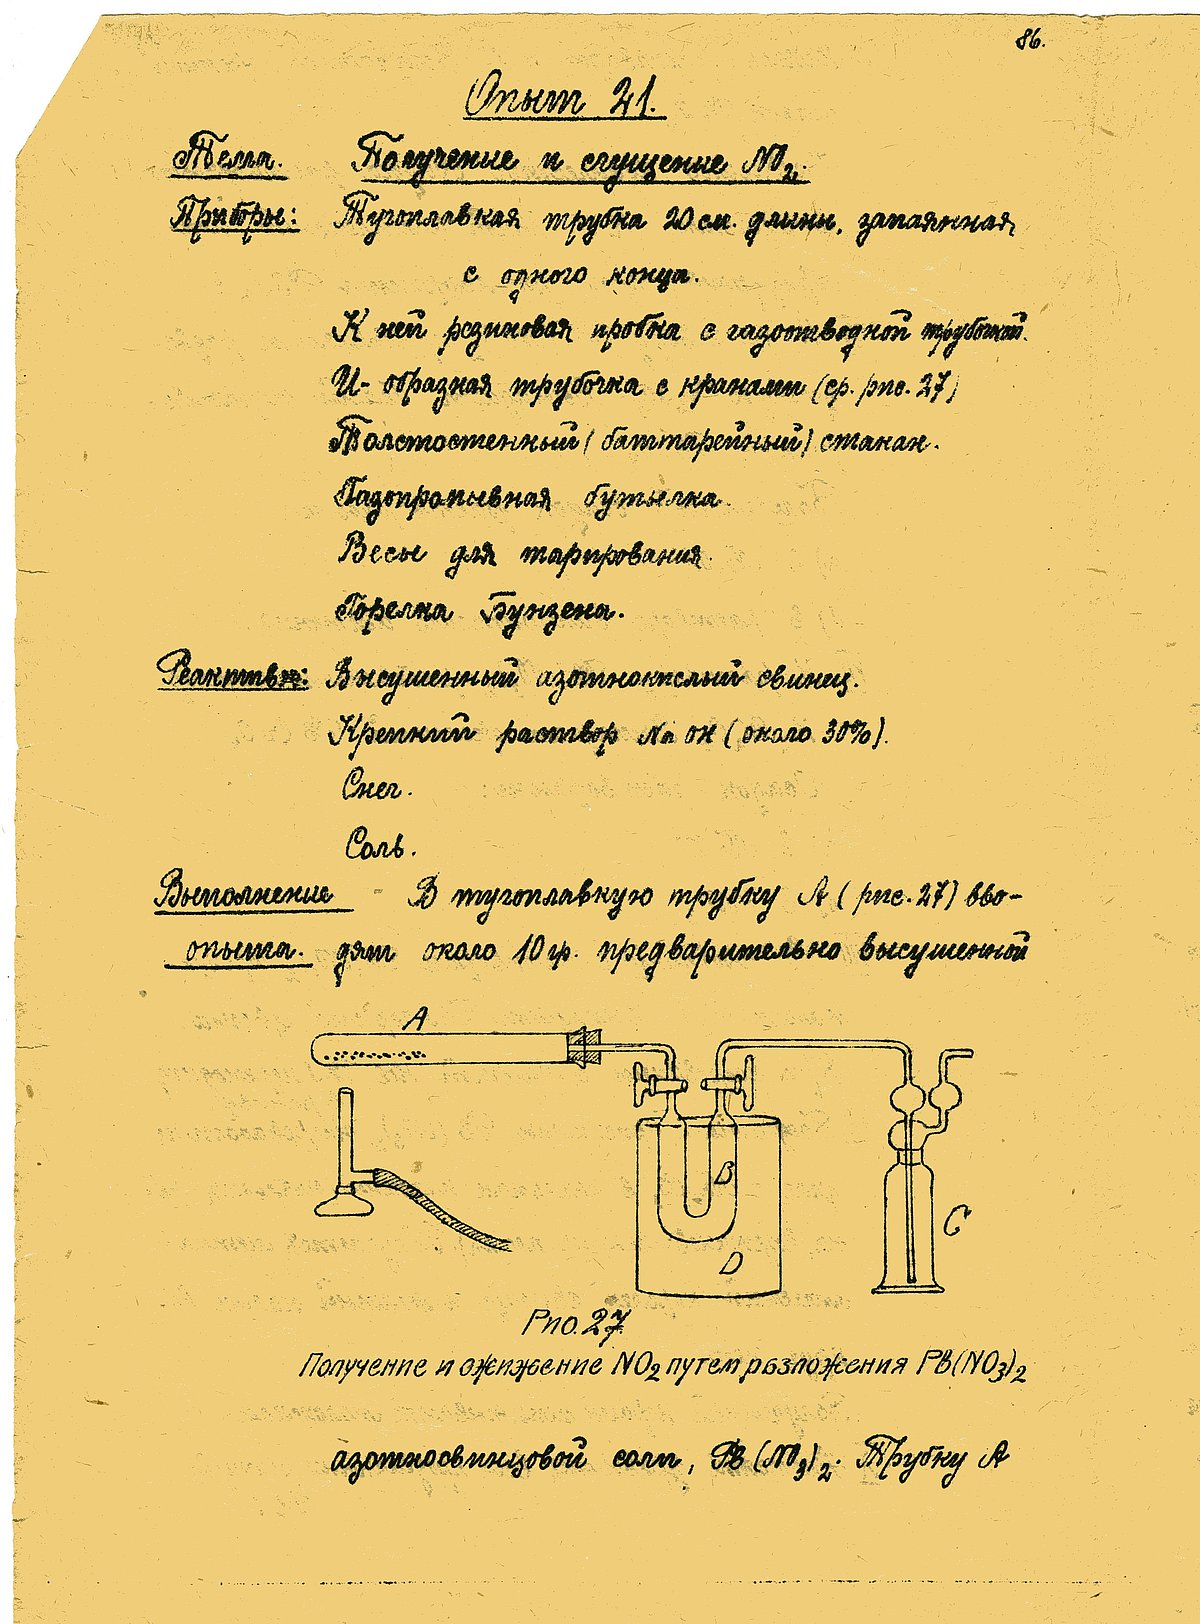 86.
Опыт 21.
Тема. Получение и сгущение NO2.
Приборы: Тугоплавкая трубка 20 см. длины, запаянная
с одного конца.
К ней резиновая пробка с газоотводной трубочкой.
U-образная трубочка с кранами (ср. рис. 27)
Толстостенный (баттарейный) стакан.
Газопромывная бутылка.
Весы для тарирования.
Горелка Бунзена.
Реактивы: Высушенный азотнокислый свинец.
Крепкий раствор NaOH (около 30%).
Снег.
Соль.
Выполнение В тугоплавкую трубку А (рис. 27) вво-
опыта. дят около 10 гр. предварительно высушенной
A
B
C
D
Рис. 27
Получение и ожижение NO2 путем разложения Pb(NO3)2
азотносвинцовой соли, Pb(NO3)2. Трубку А